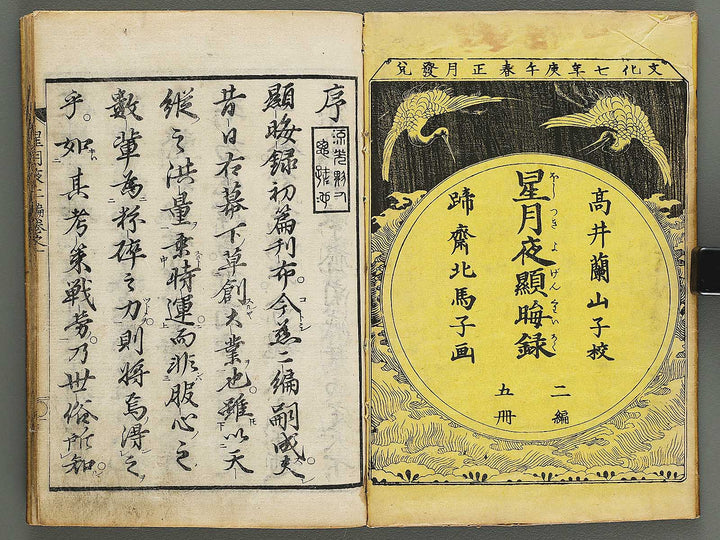 文化七年庚午春正月發兌
高井蘭山子校
星月夜顯晦録
ほしつきよげんくわいろく
蹄齋北馬子画
二編
五冊
序
顯晦録初篇利布今茲二編嗣成夫
昔日右幕下草創大業也雖以天
縱之洪量乗時運而非服心之
數輩為粉碎之力則将焉得之
乎如其考策戦労乃世俗所知